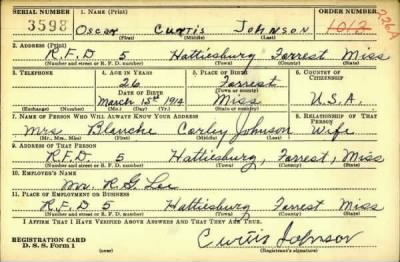 SERIAL NUMBER 1. NAME (Print) ORDER NUMBER
3598 Oscar Curtis Johnson 1012 226A
(First) (Middle) (Last)
2. ADDRESS (Print)
R.F.D 5 Hattiesburg Forrest Miss
(Number and street or R. F. D. number) (Town) (County) (State)
3. TELEPHONE 4. AGE IN YEARS 5. PLACE OF BIRTH 6. COUNTRY OF CITIZENSHIP
26 Forrest
DATE OF BIRTH (Town or county)
March 15th 1914 Miss U.S.A.
(Exchange) (Number) (Mo.) (Day) (Yr.) (State or country)
7. NAME OF PERSON WHO WILL ALWAYS KNOW YOUR ADDRESS 8. RELATIONSHIP OF THAT PERSON
Mrs Blanche Corley Johnson Wife
(Mr., Mrs., Miss) (First) (Middle) (Last)
9. ADDRESS OF THAT PERSON
R.F.D. 5 Hattiesburg, Forrest, Miss
(Number and street or R. F. D. number) (Town) (County) (State)
10. EMPLOYER'S NAME
Mr. R G Lee
11. PLACE OF EMPLOYMENT OR BUSINESS
R.F.D 5 Hattiesburg Forrest Miss
(Number and street or R. F. D. number) (Town) (County) (State)
I AFFIRM THAT I HAVE VERIFIED ABOVE ANSWERS AND THAT THEY ARE TRUE.
REGISTRATION CARD
D. S. S. Form 1 Curtis Johnson
(Registrant's signature)